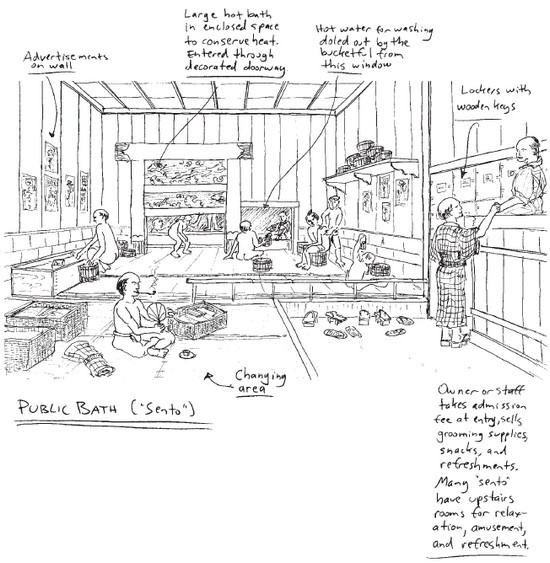 Large hot bath
in enclosed space
to conserve heat.
Entered through
decorated doorway
Hot water for washing
doled out by the
bucketful from
this window
Advertisements
on wall
Lockers with
wooden keys
Changing
area
PUBLIC BATH ("Sento")
Owner or staff
takes admission
fee at entry, sells
grooming supplies,
snacks, and
refreshments.
Many "sento"
have upstairs
rooms for relax-
ation, amusement,
and refreshment.